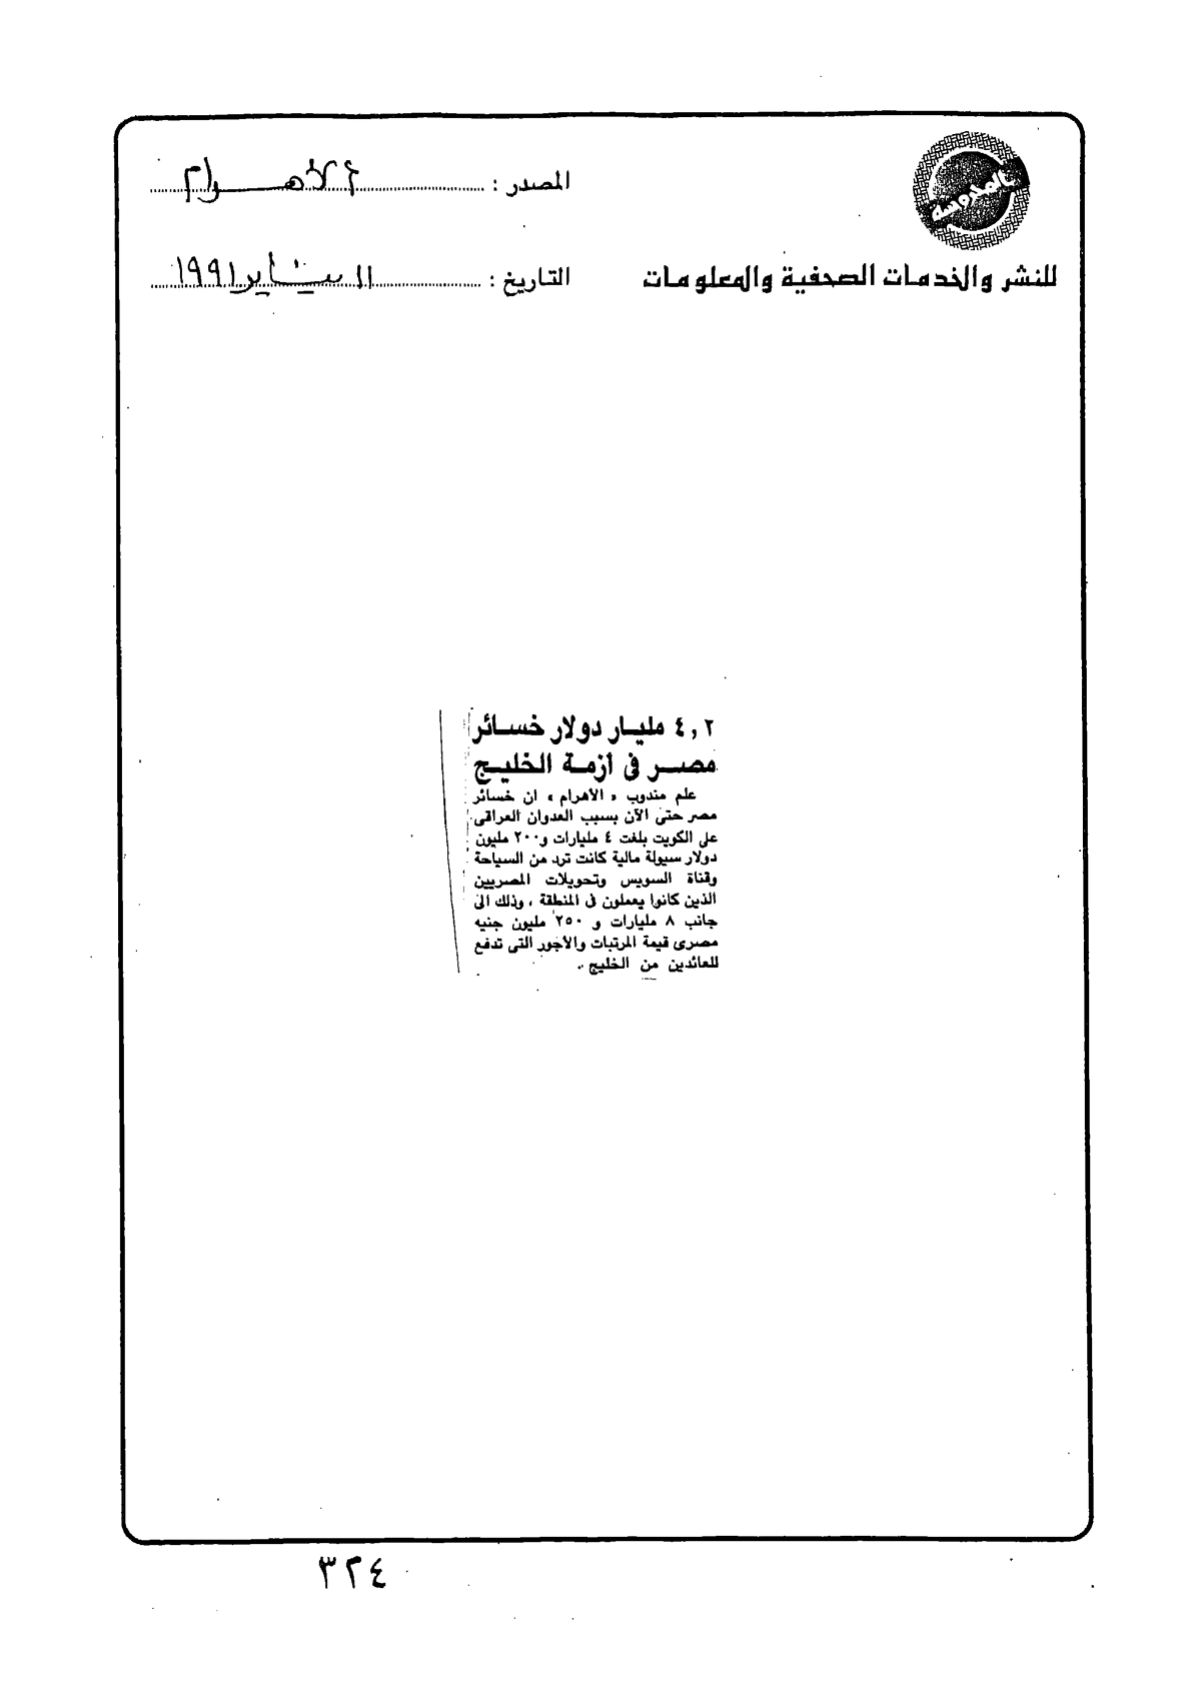 المصدر : الأهرام
للنشر والخدمات الصحفية والمعلومات
التاريخ : ١١ يناير ١٩٩١
٤,٢ مليار دولار خسائر
مصر فى أزمة الخليج
علم مندوب « الأهرام » ان خسائر
مصر حتى الآن بسبب العدوان العراقى
على الكويت بلغت ٤ مليارات و٢٠٠ مليون
دولار سيولة مالية كانت ترد من السياحة
وقناة السويس وتحويلات المصريين
الذين كانوا يعملون فى المنطقة ، وذلك الى
جانب ٨ مليارات و ٢٥٠ مليون جنيه
مصرى قيمة المرتبات والأجور التى تدفع
للعائدين من الخليج .
٣٢٤